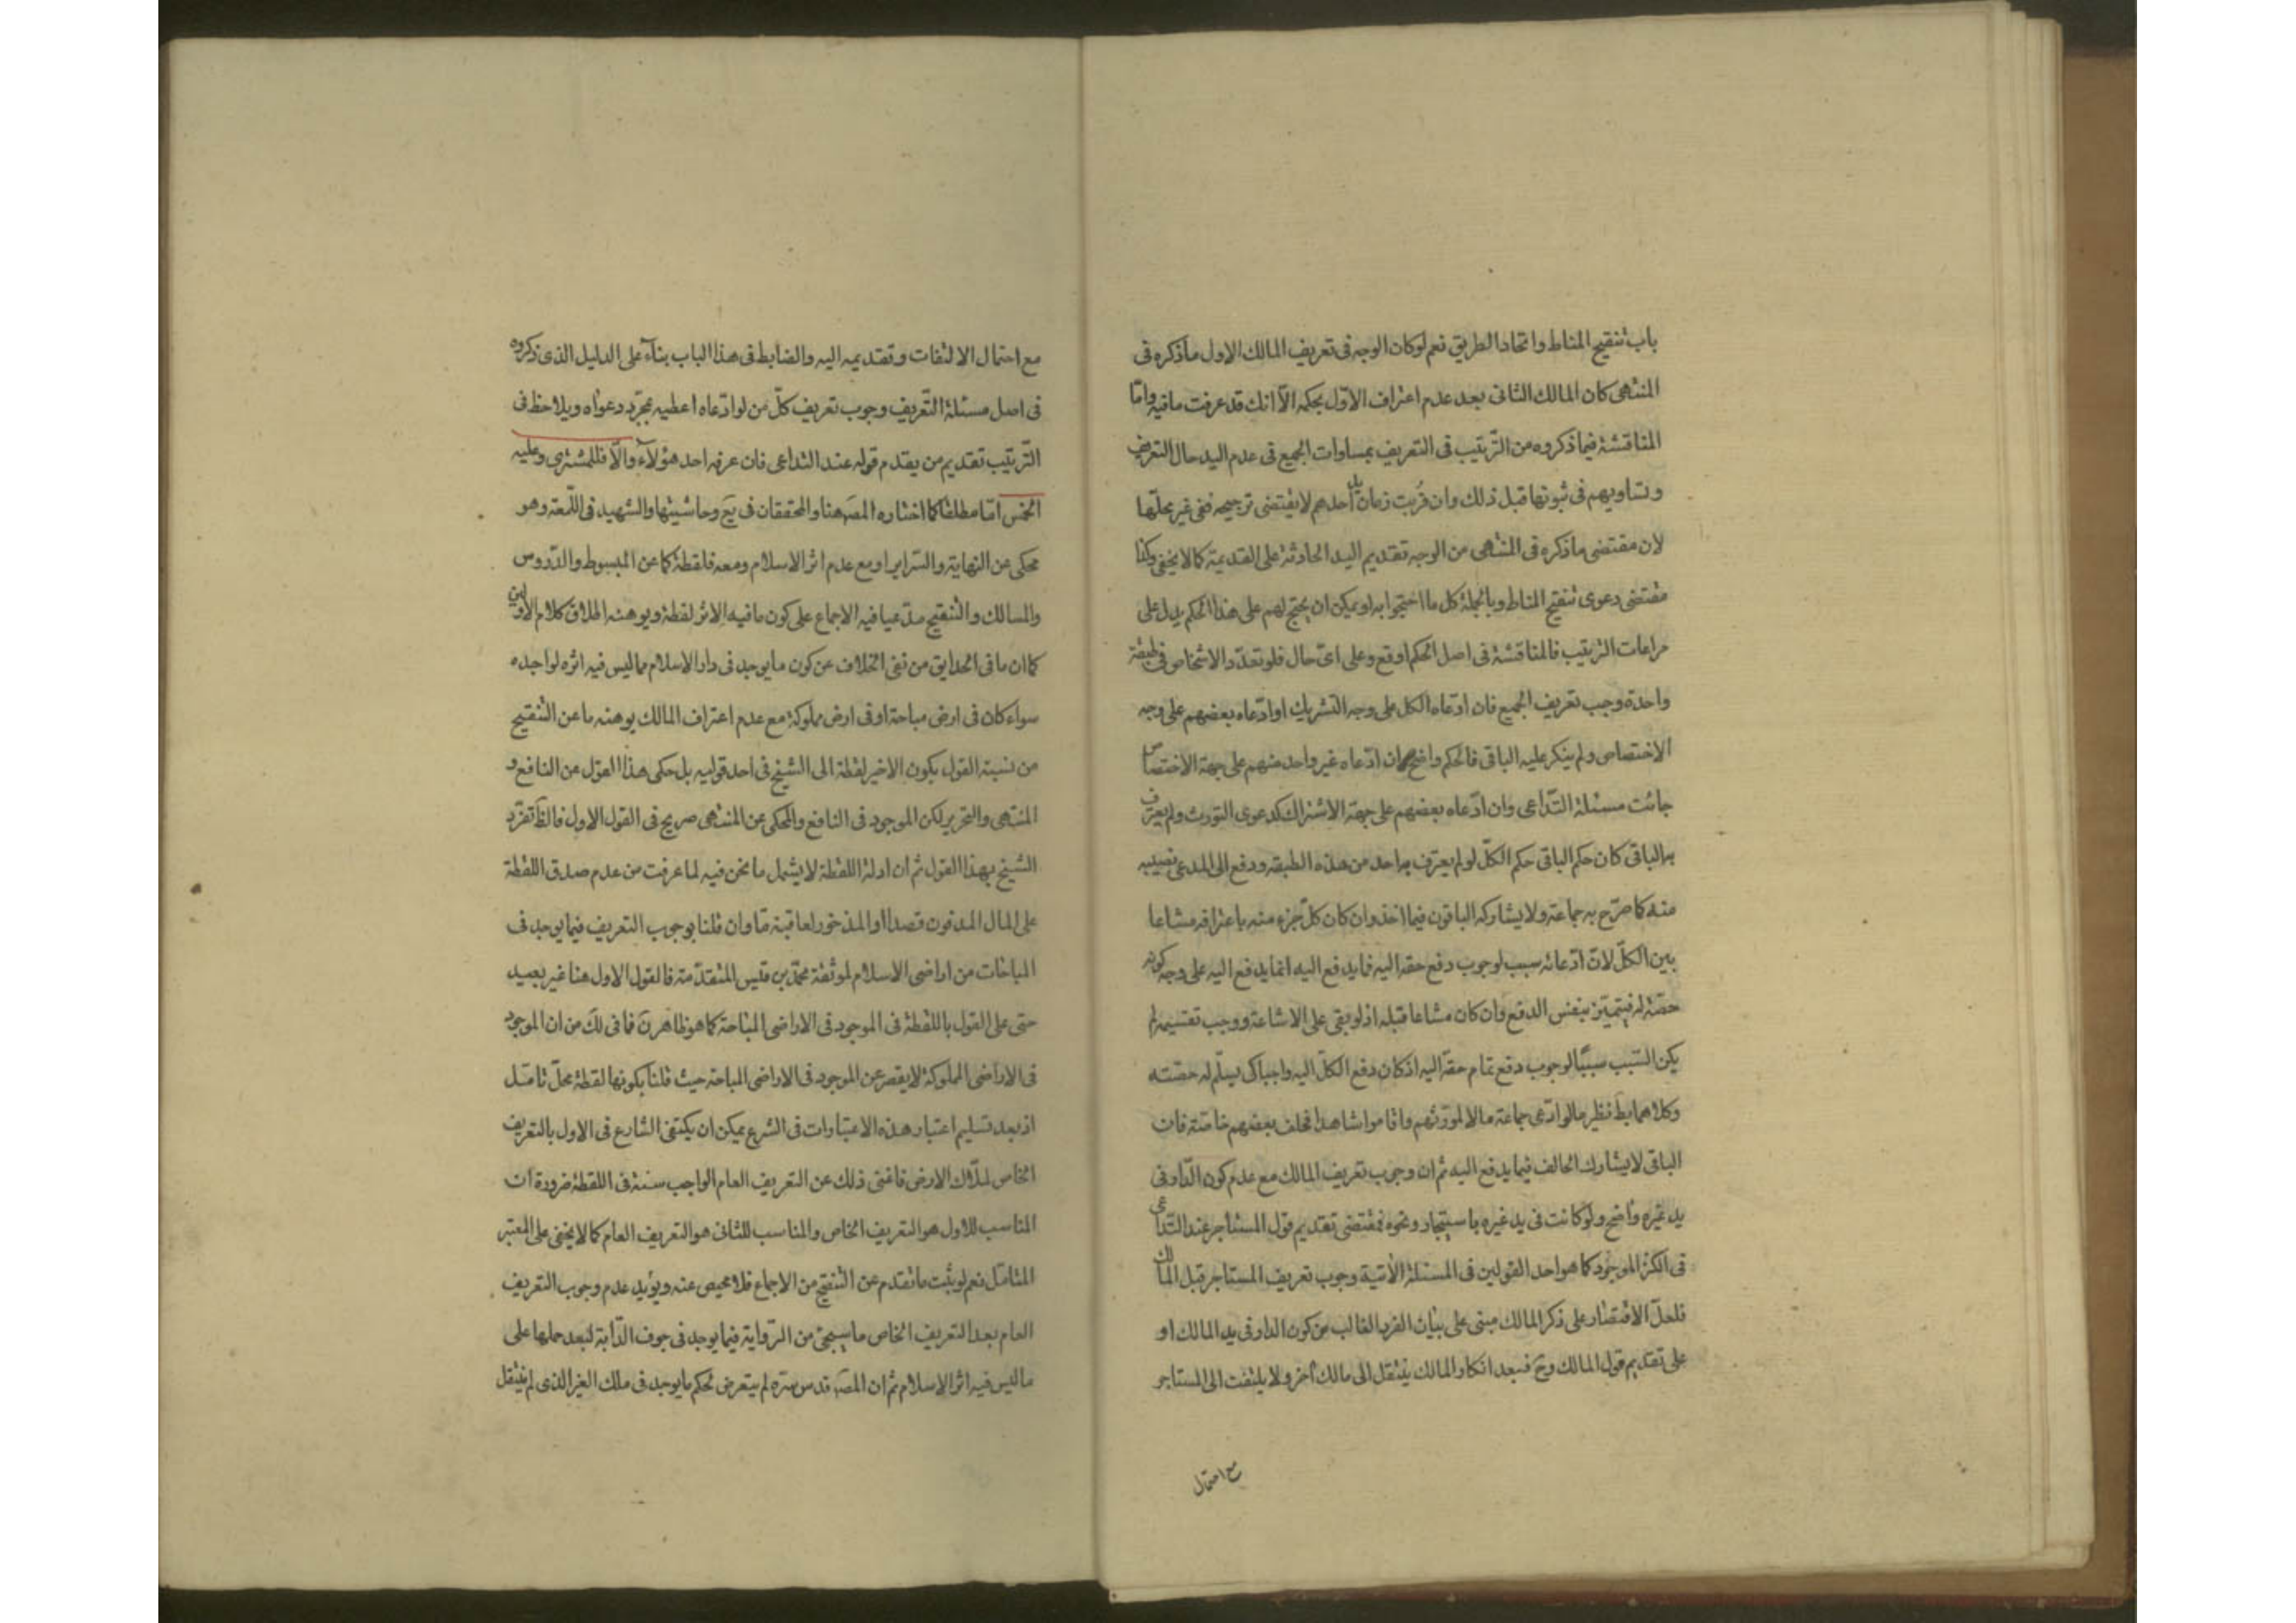 باب تنقيح المناط واتحاد الطريق نعم لو كان الوجه فى تعريف المالك الاول ما ذكره فى
المنتهى كان المالك الثانى بعد عدم اعتراف الاوّل بحكمه الّا انك قد عرفت ما فيه وامّا
المناقشة فيما ذكروه من التّرتيب فى التعريف بمساوات الجميع فى عدم اليد حال التعريف
وتساويهم فى ثبوتها قبل ذلك وان قربت زمان يد احدهم لا يقتضى ترجيحه ففى غير محلّها
لان مقتضى ما ذكره فى المنتهى من الوجه تقديم اليد الحادثة على القديمة كما لا يخفى وكذا
مقتضى دعوى تنقيح المناط وبالجملة كل ما احتجوا به او يمكن ان يحتج لهم على هذا الحكم يدل على
مراعات الترتيب فالمناقشة فى اصل الحكم اوقع وعلى اىّ حال فلو تعدّد الاشخاص فى طبقة
واحدة وجب تعريف الجميع فان ادّعاه الكل على وجه التشريك او ادّعاه بعضهم على وجه
الاختصاص ولم ينكر عليه الباقى فالحكم واضح وان ادّعاه غير واحد منهم على جهة الاختصاص
جائت مسئلة التّداعى وان ادّعاه بعضهم على جهة الاشتراك كدعوى التوريث ولم يعترف
به الباقى كان حكم الباقى حكم الكلّ لو لم يعترف به احد من هذه الطبقه ودفع الى المدعى نصيبه
منه كما صرّح به جماعة ولا يشاركه الباقون فيما اخذ وان كان كلّ جزء منه باعترافه مشاعا
بين الكلّ لانّ ادّعائه سبب لوجوب دفع حقه اليه فما يدفع اليه انما يدفع اليه على وجه كونه
حصّة له فيتميّز بنفس الدفع وان كان مشاعا قبله اذ لو بقى على الاشاعة ووجب تقسيمه لم
يكن السّبب سببًا لوجوب دفع تمام حقّه اليه اذ كان دفع الكلّ اليه واجبا كى يسلّم له حصّته
وكلاهما بط نظير ما لو ادّعى جماعة مالا لمورّثهم واقاموا شاهدا فحلف بعضهم خاصّة فان
الباقى لا يشارك الحالف فيما يدفع اليه ثم ان وجوب تعريف المالك مع عدم كون الدّار فى
يد غيره واضح ولو كانت فى يد غيره باستيجار ونحوه فمقتضى تقديم قول المستأجر عند التّداعى
فى الكنز الموجود كما هو احد القولين فى المسئلة الآتية وجوب تعريف المستاجر قبل المالك
فلعلّ الاقتصار على ذكر المالك مبنى على بيان الفرد الغالب من كون الدار فى يد المالك او
على تقديم قول المالك وح فبعد انكار المالك ينتقل الى مالك آخر ولا يلتفت الى المستاجر
مع احتمال
مع احتمال الالتفات وتقديمه اليه والضابط فى هذا الباب بناءً على الدليل الذى ذكروه
فى اصل مسئلة التّعريف وجوب تعريف كلّ من لو ادّعاه اعطيه بمجرّد دعواه ويلاحظ فى
التّرتيب تقديم من يقدم قوله عند التداعى فان عرفه احد هؤلآء والّا فللمشترى وعليه
الخمس امّا مطلقا كما اختاره المص هنا والمحققان فى يع وحاشيتها والشهيد فى اللّمعة وهو
محكى عن النهاية والسّراير او مع عدم اثر الاسلام ومعه فلقطة كما عن المبسوط والدّروس
والمسالك والتنقيح مدّعيا فيه الاجماع على كون ما فيه الاثر لقطة ويوهنه اطلاق كلام الاولين
كما ان ما فى الحدايق من نفى الخلاف عن كون ما يوجد فى دار الاسلام مما ليس فيه اثره لواجده
سواء كان فى ارض مباحة او فى ارض مملوكة مع عدم اعتراف المالك يوهنه ما عن التنقيح
من نسبة القول بكون الاخير لقطة الى الشيخ فى احد قوليه بل حكى هذا القول عن النافع و
المنتهى والتحرير لكن الموجود فى النافع والمحكى عن المنتهى صريح فى القول الاول فالظ تفرّد
الشيخ بهذا القول ثم ان ادلة اللقطة لا يشمل ما نحن فيه لما عرفت من عدم صدق اللقطة
على المال المدفون قصدا او المذخور لعاقبة مّا وان قلنا بوجوب التعريف فيما يوجد فى
المباحات من اراضى الاسلام لموثقة محمّد بن قيس المتقدّمة فالقول الاول هنا غير بعيد
حتى على القول باللقطة فى الموجود فى الاراضى المباحة كما هو ظاهر ن فما فى لك من ان الموجود
فى الاراضى المملوكة لا يقصر عن الموجود فى الاراضى المباحة حيث قلنا بكونها لقطة محلّ تامّل
اذ بعد تسليم اعتبار هذه الاعتبارات فى الشرع يمكن ان يكتفى الشارع فى الاول بالتعريف
الخاص لملّاك الارض فاغنى ذلك عن التعريف العام الواجب سنة فى اللقطة ضرورة ان
المناسب للاول هو التعريف الخاص والمناسب للثانى هو التعريف العام كما لا يخفى على المعتبر
المتامّل نعم لو ثبت ما تقدم عن التنقيح من الاجماع فلا محيص عنه ويؤيد عدم وجوب التعريف
العام بعد التعريف الخاص ما سيجئ من الرّواية فيما يوجد فى جوف الدّابة لبعد حملها على
ما ليس فيه اثر الاسلام ثم ان المص قدس سره لم يتعرض لحكم ما يوجد فى ملك الغير الذى لم ينتقل